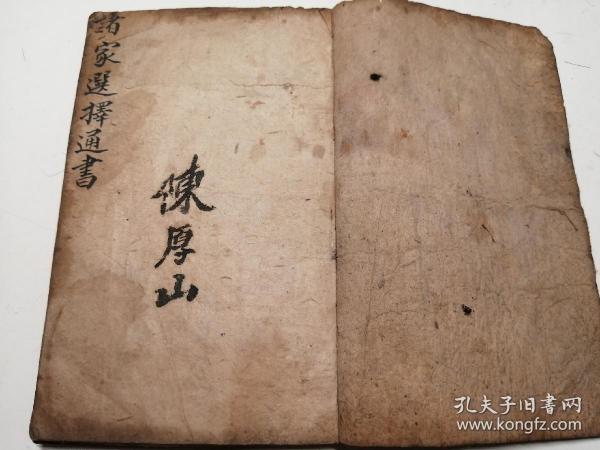 諸家選擇通書
陳厚山
孔夫子旧书网
www.kongfz.com